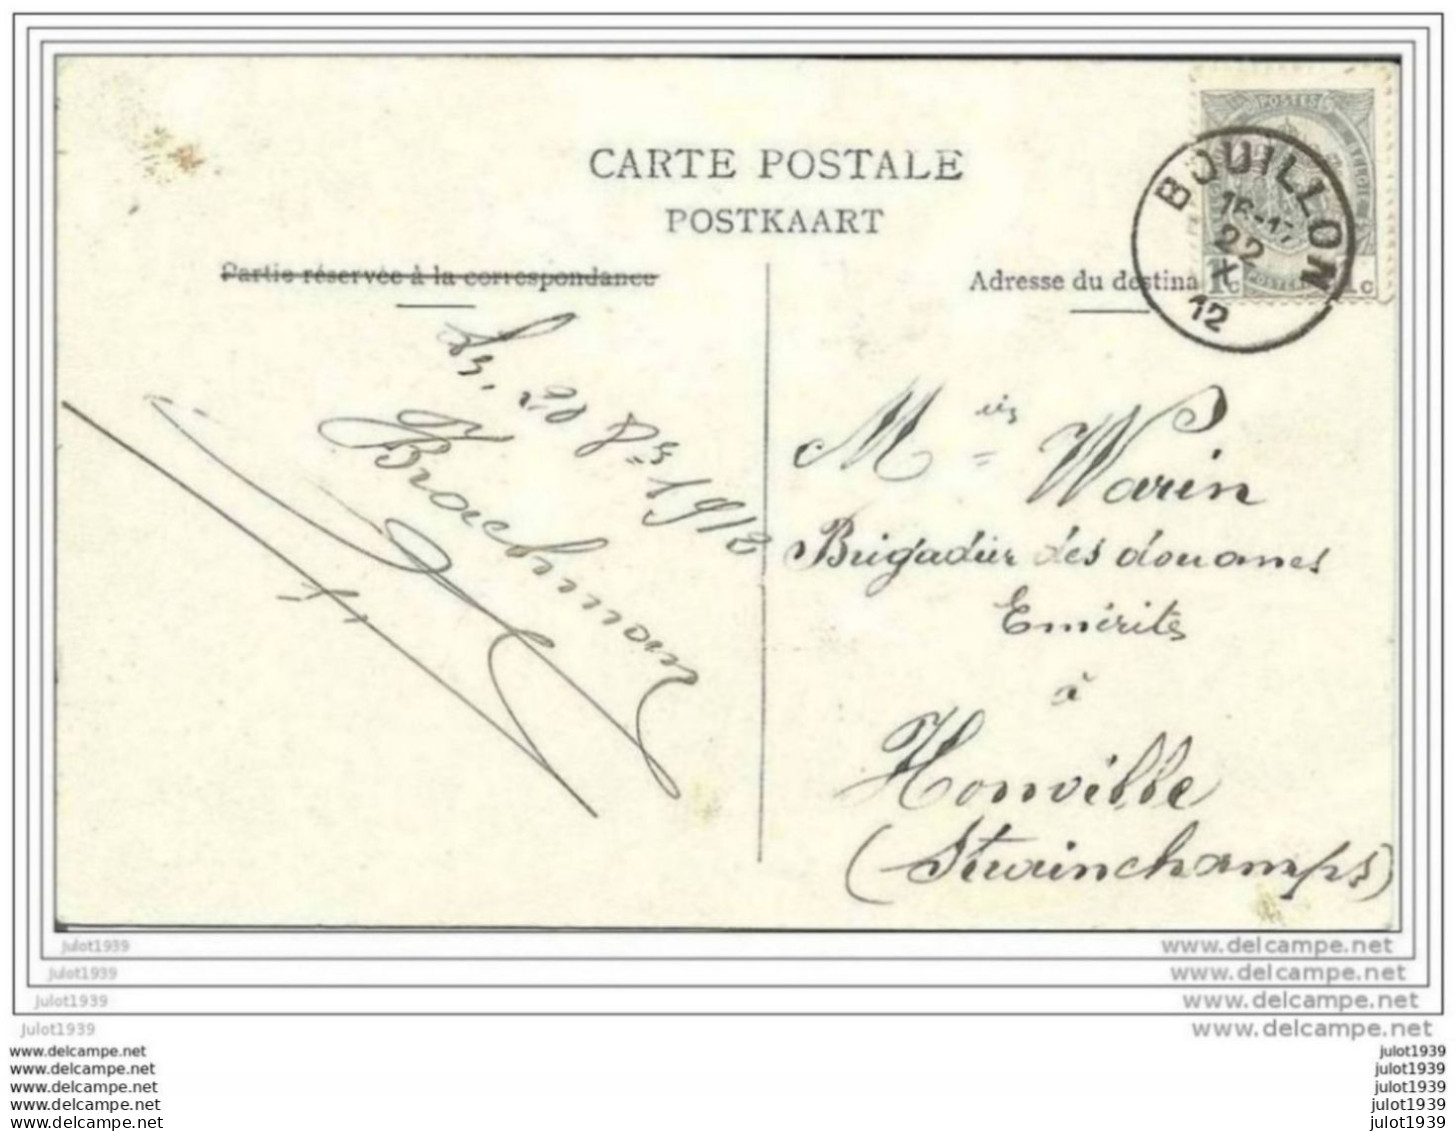 CARTE POSTALE
POSTKAART
Partie réservée à la correspondance
Adresse du destina
POSTES
BOUILLON
16-17
22
X
12
1c
1c
20 8re 1912
Brachmont
M is Warin
Brigadier des douanes
Emérite
à
Honville
(Strainchamps)
julot1939 www.delcampe.net
julot1939 www.delcampe.net
julot1939 www.delcampe.net
julot1939 www.delcampe.net
www.delcampe.net julot1939
www.delcampe.net julot1939
www.delcampe.net julot1939
www.delcampe.net julot1939
www.delcampe.net julot1939